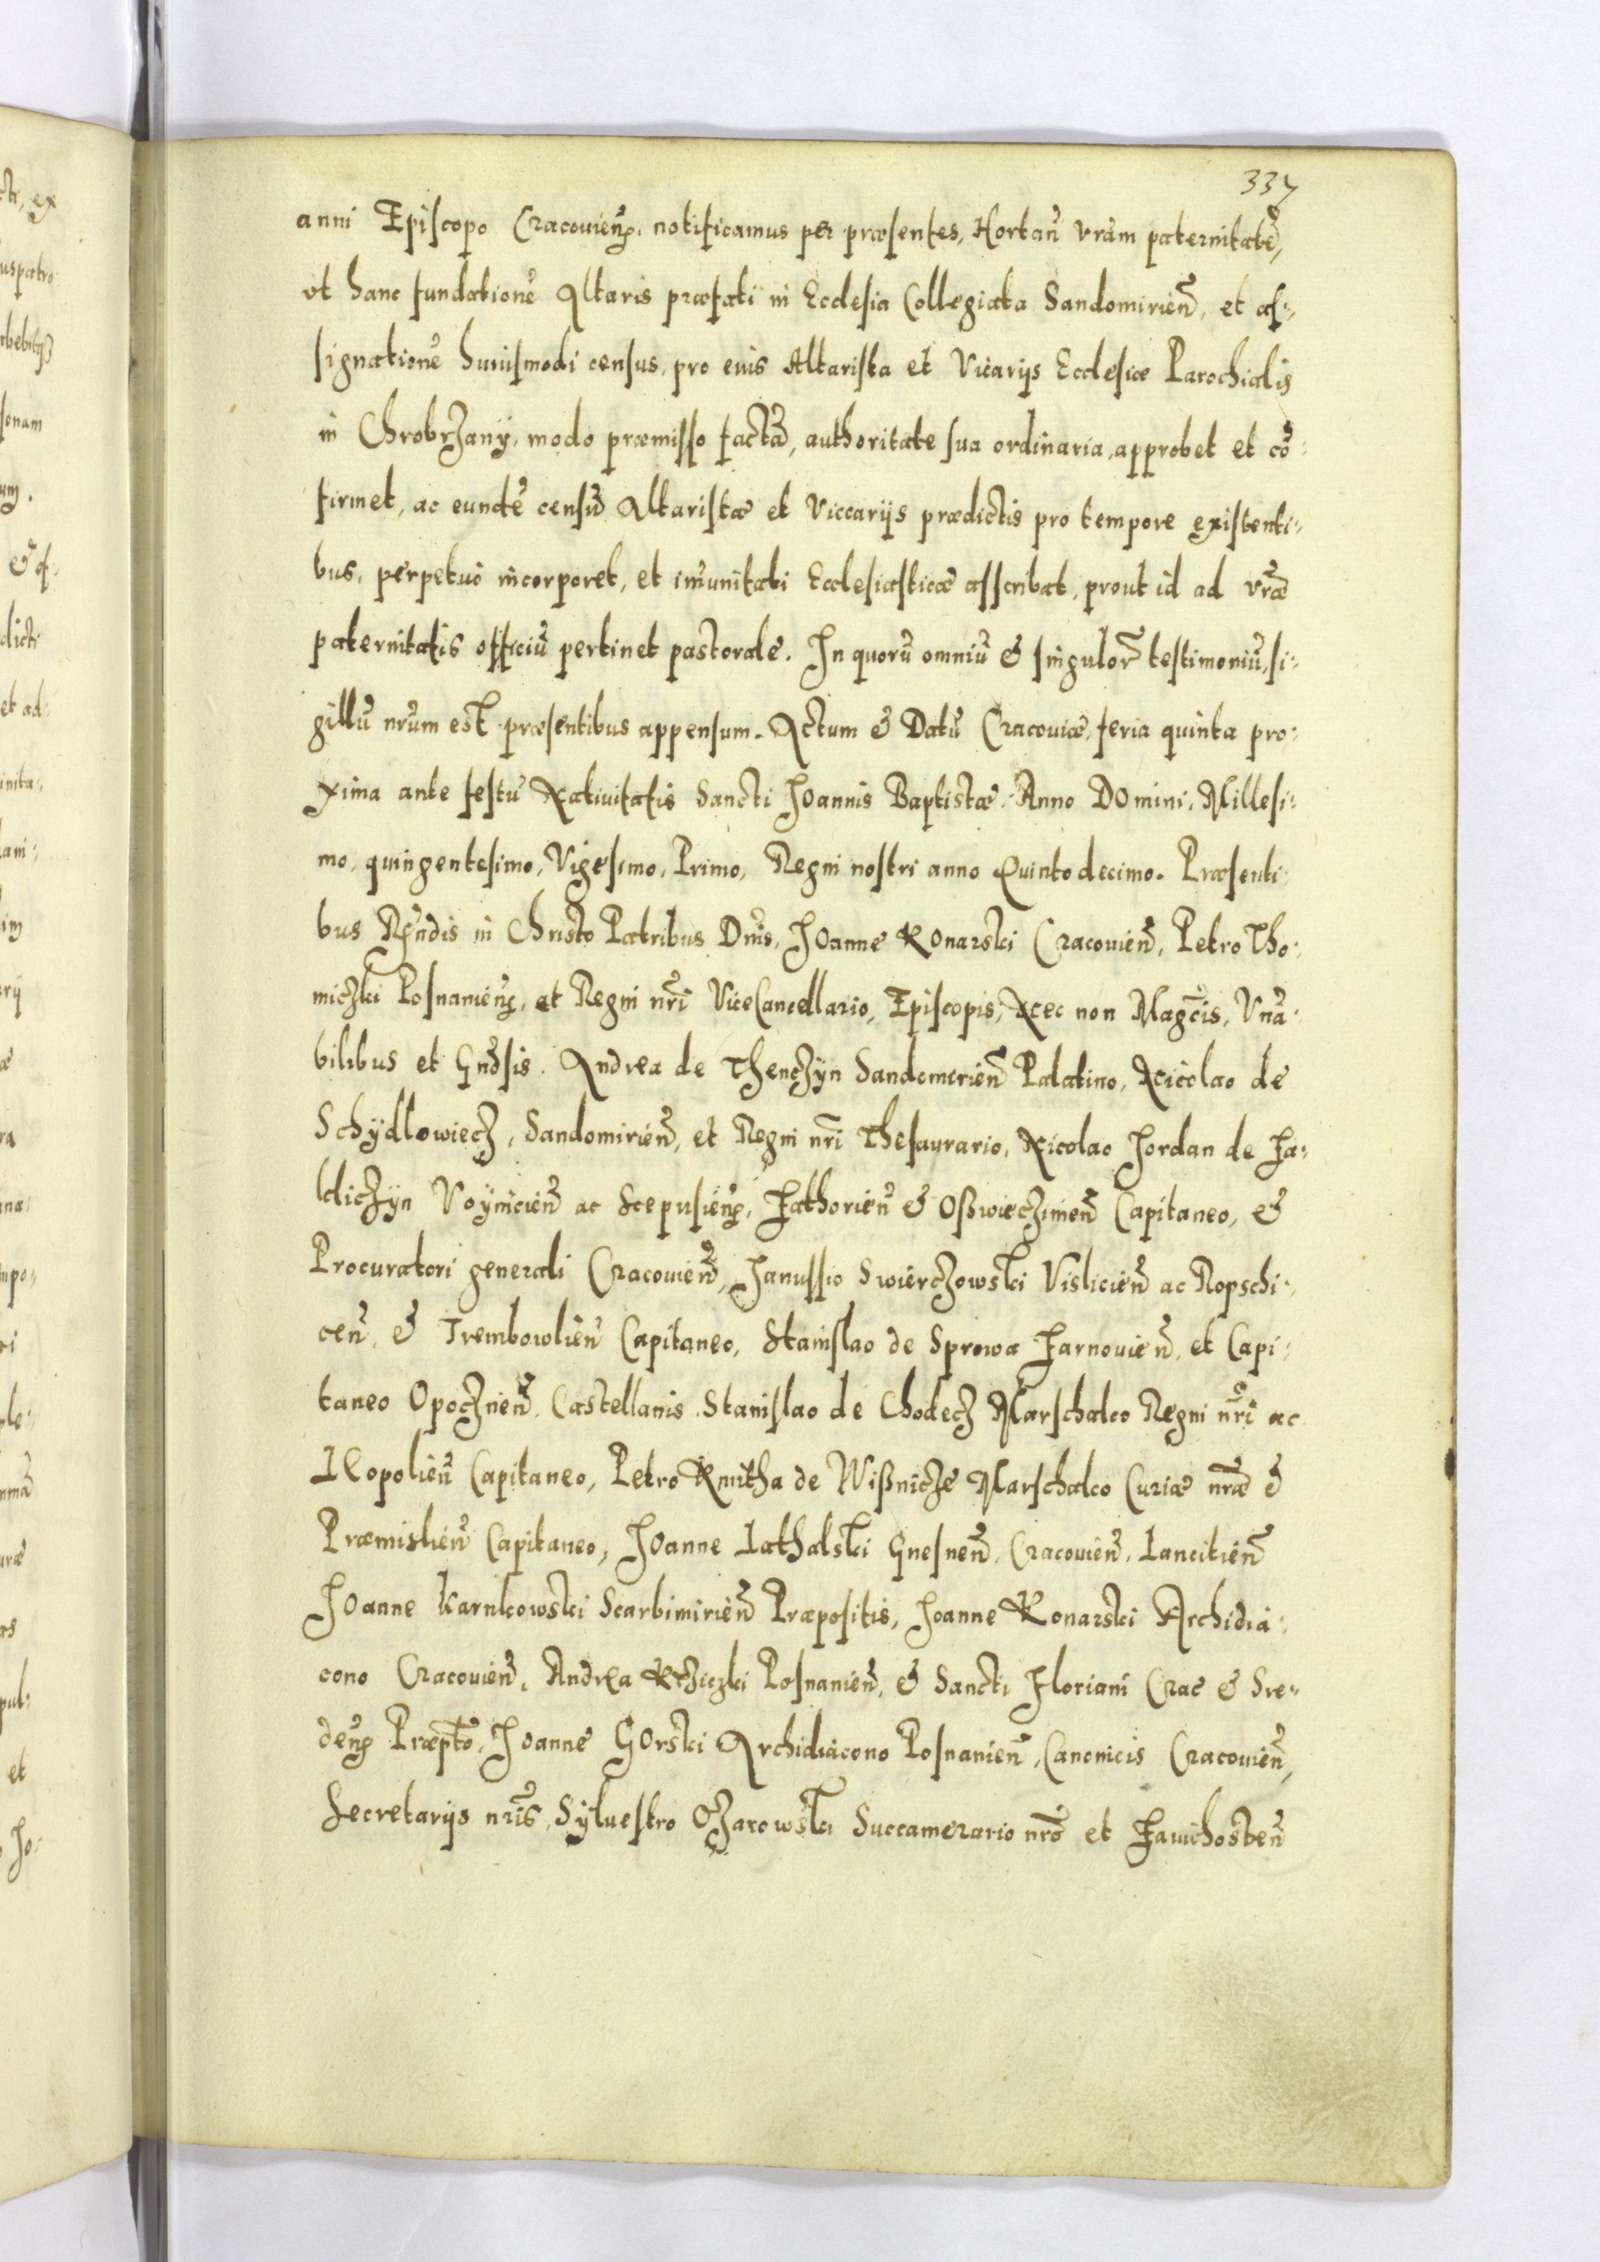 337
anni Episcopo Cracovieñ. notificamus per præsentes, Hortañ vrãm paternitatẽ,
vt hanc fundationẽ Altaris præfati in Ecclesia Collegiata Sandomirieñ, et as-
signationẽ huiusmodi census, pro eius Altarista et Vicarijs Ecclesiæ Parochialis
in Chrobrzany, modo præmisso factã, authoritate sua ordinaria, approbet et cõ-
firmet, ac eundẽ censũ Altaristæ et Viccarijs prædictis pro tempore existenti-
bus, perpetuò incorporet, et im̃unitati Ecclesiasticæ asscribat, prout id ad vrã
paternitatis officiũ pertinet pastorale. In quorũ omniũ & singulor̃ testimoniũ, si-
gillũ nr̃um est præsentibus appensum. Actum & Datũ Cracoviæ, feria quinta pro-
xima ante festũ Nativitatis Sancti Joannis Baptistæ. Anno Domini, Millesi-
mo, quingentesimo, Vigesimo, Primo, Regni nostri anno Quinto decimo. Præsenti-
bus Rñdis in Christo Patribus Dñis, Joanne Konarski Cracovieñ, Petro Tho-
miczki Posnanieñ, et Regni nr̃i ViceCancellario, Episcopis, Nec non Magcis, Vnã-
bilibus et Gñdsis. Andrea de Thenczyn Sandomirieñ Palatino, Nicolao de
Schÿdlowiecz, Sandomirieñ, et Regni nr̃i Thesaurario, Nicolao Jordan de Za-
kliczÿn Voÿnicieñ ac Scepusieñ, Zathorieñ & Oswieczimeñ Capitaneo, &
Procuratori generali Cracovieñ, Janussio Swierczowski Vislicieñ ac Ropschi-
ceñ, & Trembowlieñ Capitaneo, Stanislao de Sprowa Zarnovieñ, et Capi-
taneo Opocznieñ, Castellanis. Stanislao de Chodecz Marschalco Regni nr̃i ac
Leopolieñ Capitaneo, Petro Kmitha de Wißnicze Marschalco Curiæ nrãe &
Præmislieñ Capitaneo, Joanne Lathalski Gnesneñ, Cracovieñ, Lancitieñ
Joanne Karnkowski Scarbimirieñ Præpositis, Joanne Konarski Archidia-
cono Cracovieñ, Andrea Krziczki Posnanieñ, & Sancti Floriani Crac & Sre-
deñ Præpto, Joanne Gorski Archidiacono Posnanieñ, Canonicis Cracovieñ,
Secretarijs nr̃is, Sÿluestro Ozarowski Succamerario nrõ et Zauichosteñ